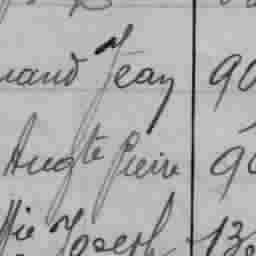 uand Jean 90
Augte Pierre 90
ffie Joseph 13